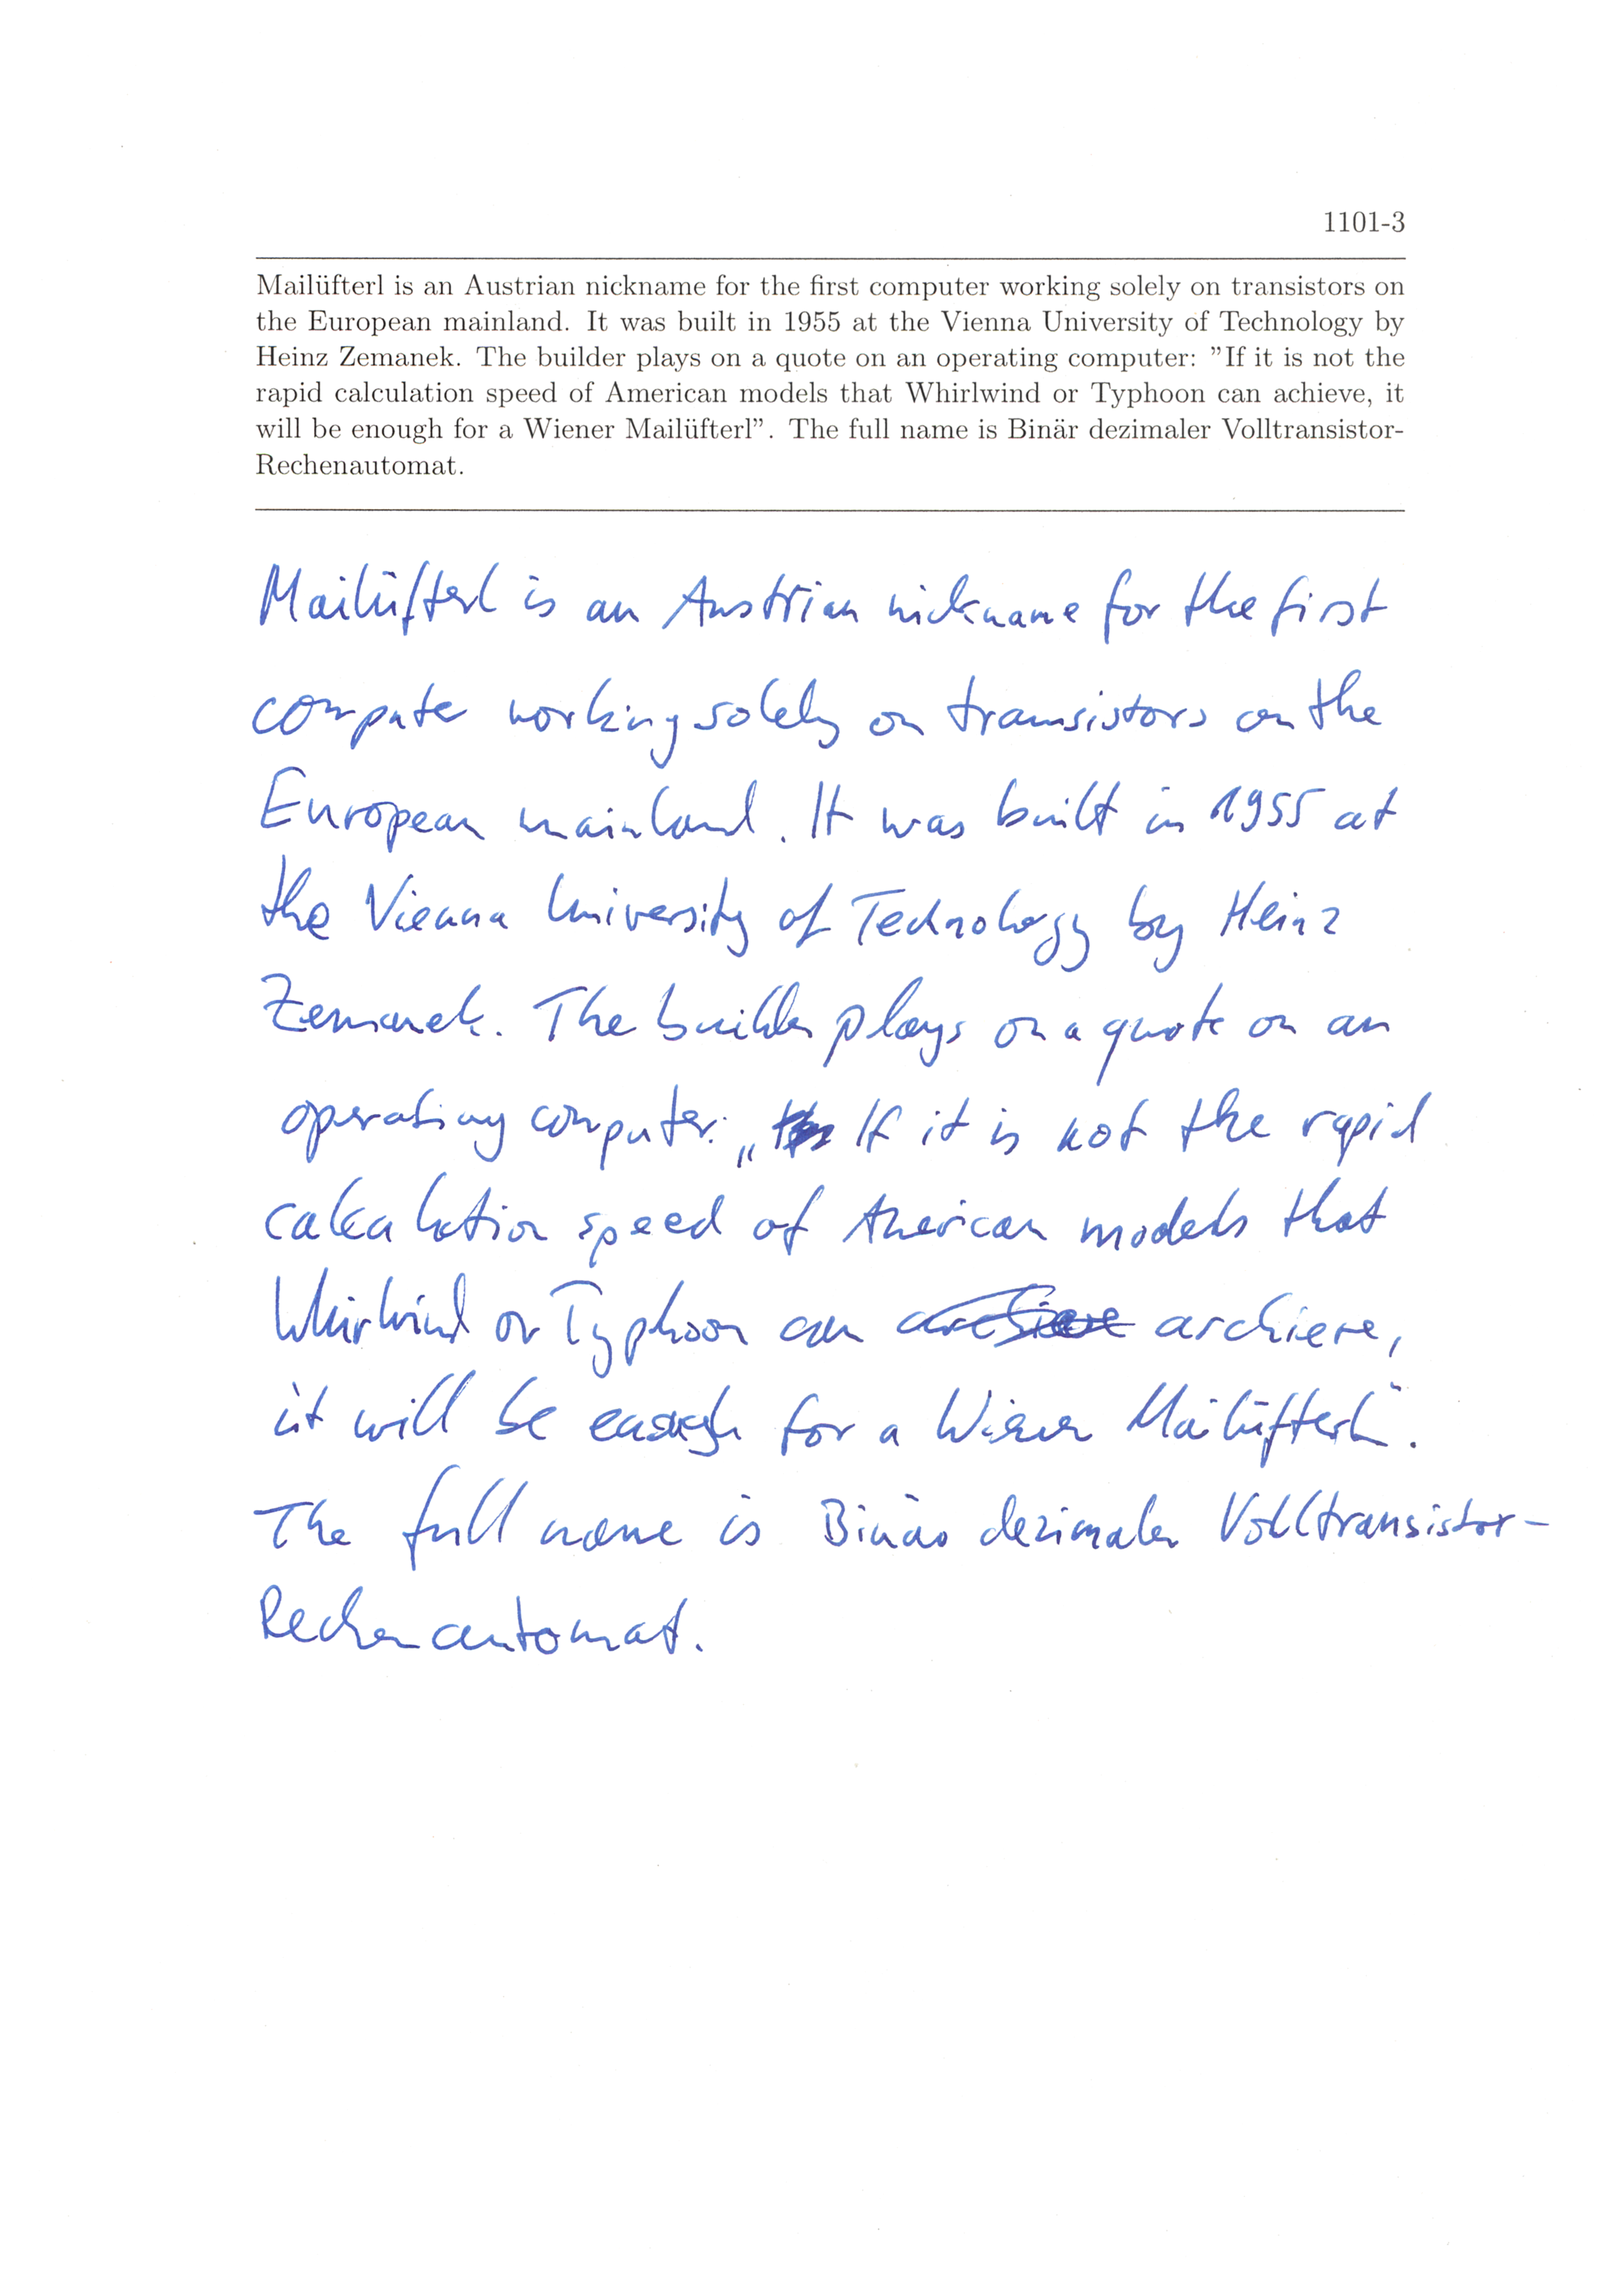 1101-3
Mailüfterl is an Austrian nickname for the first computer working solely on transistors on
the European mainland. It was built in 1955 at the Vienna University of Technology by
Heinz Zemanek. The builder plays on a quote on an operating computer: ”If it is not the
rapid calculation speed of American models that Whirlwind or Typhoon can achieve, it
will be enough for a Wiener Mailüfterl”. The full name is Binär dezimaler Volltransistor-
Rechenautomat.
Mailüfterl is an Austrian nickname for the first
computer working solely on transistors on the
European mainland. It was built in 1955 at
the Vienna University of Technology by Heinz
Zemanek. The builder plays on a quote on an
operating computer: „If it is not the rapid
calculation speed of American models that
Whirlwind or Typhoon can archieve,
it will be enough for a Wiener Mailüfterl“.
The full name is Binär dezimaler Volltransistor-
Rechenautomat.